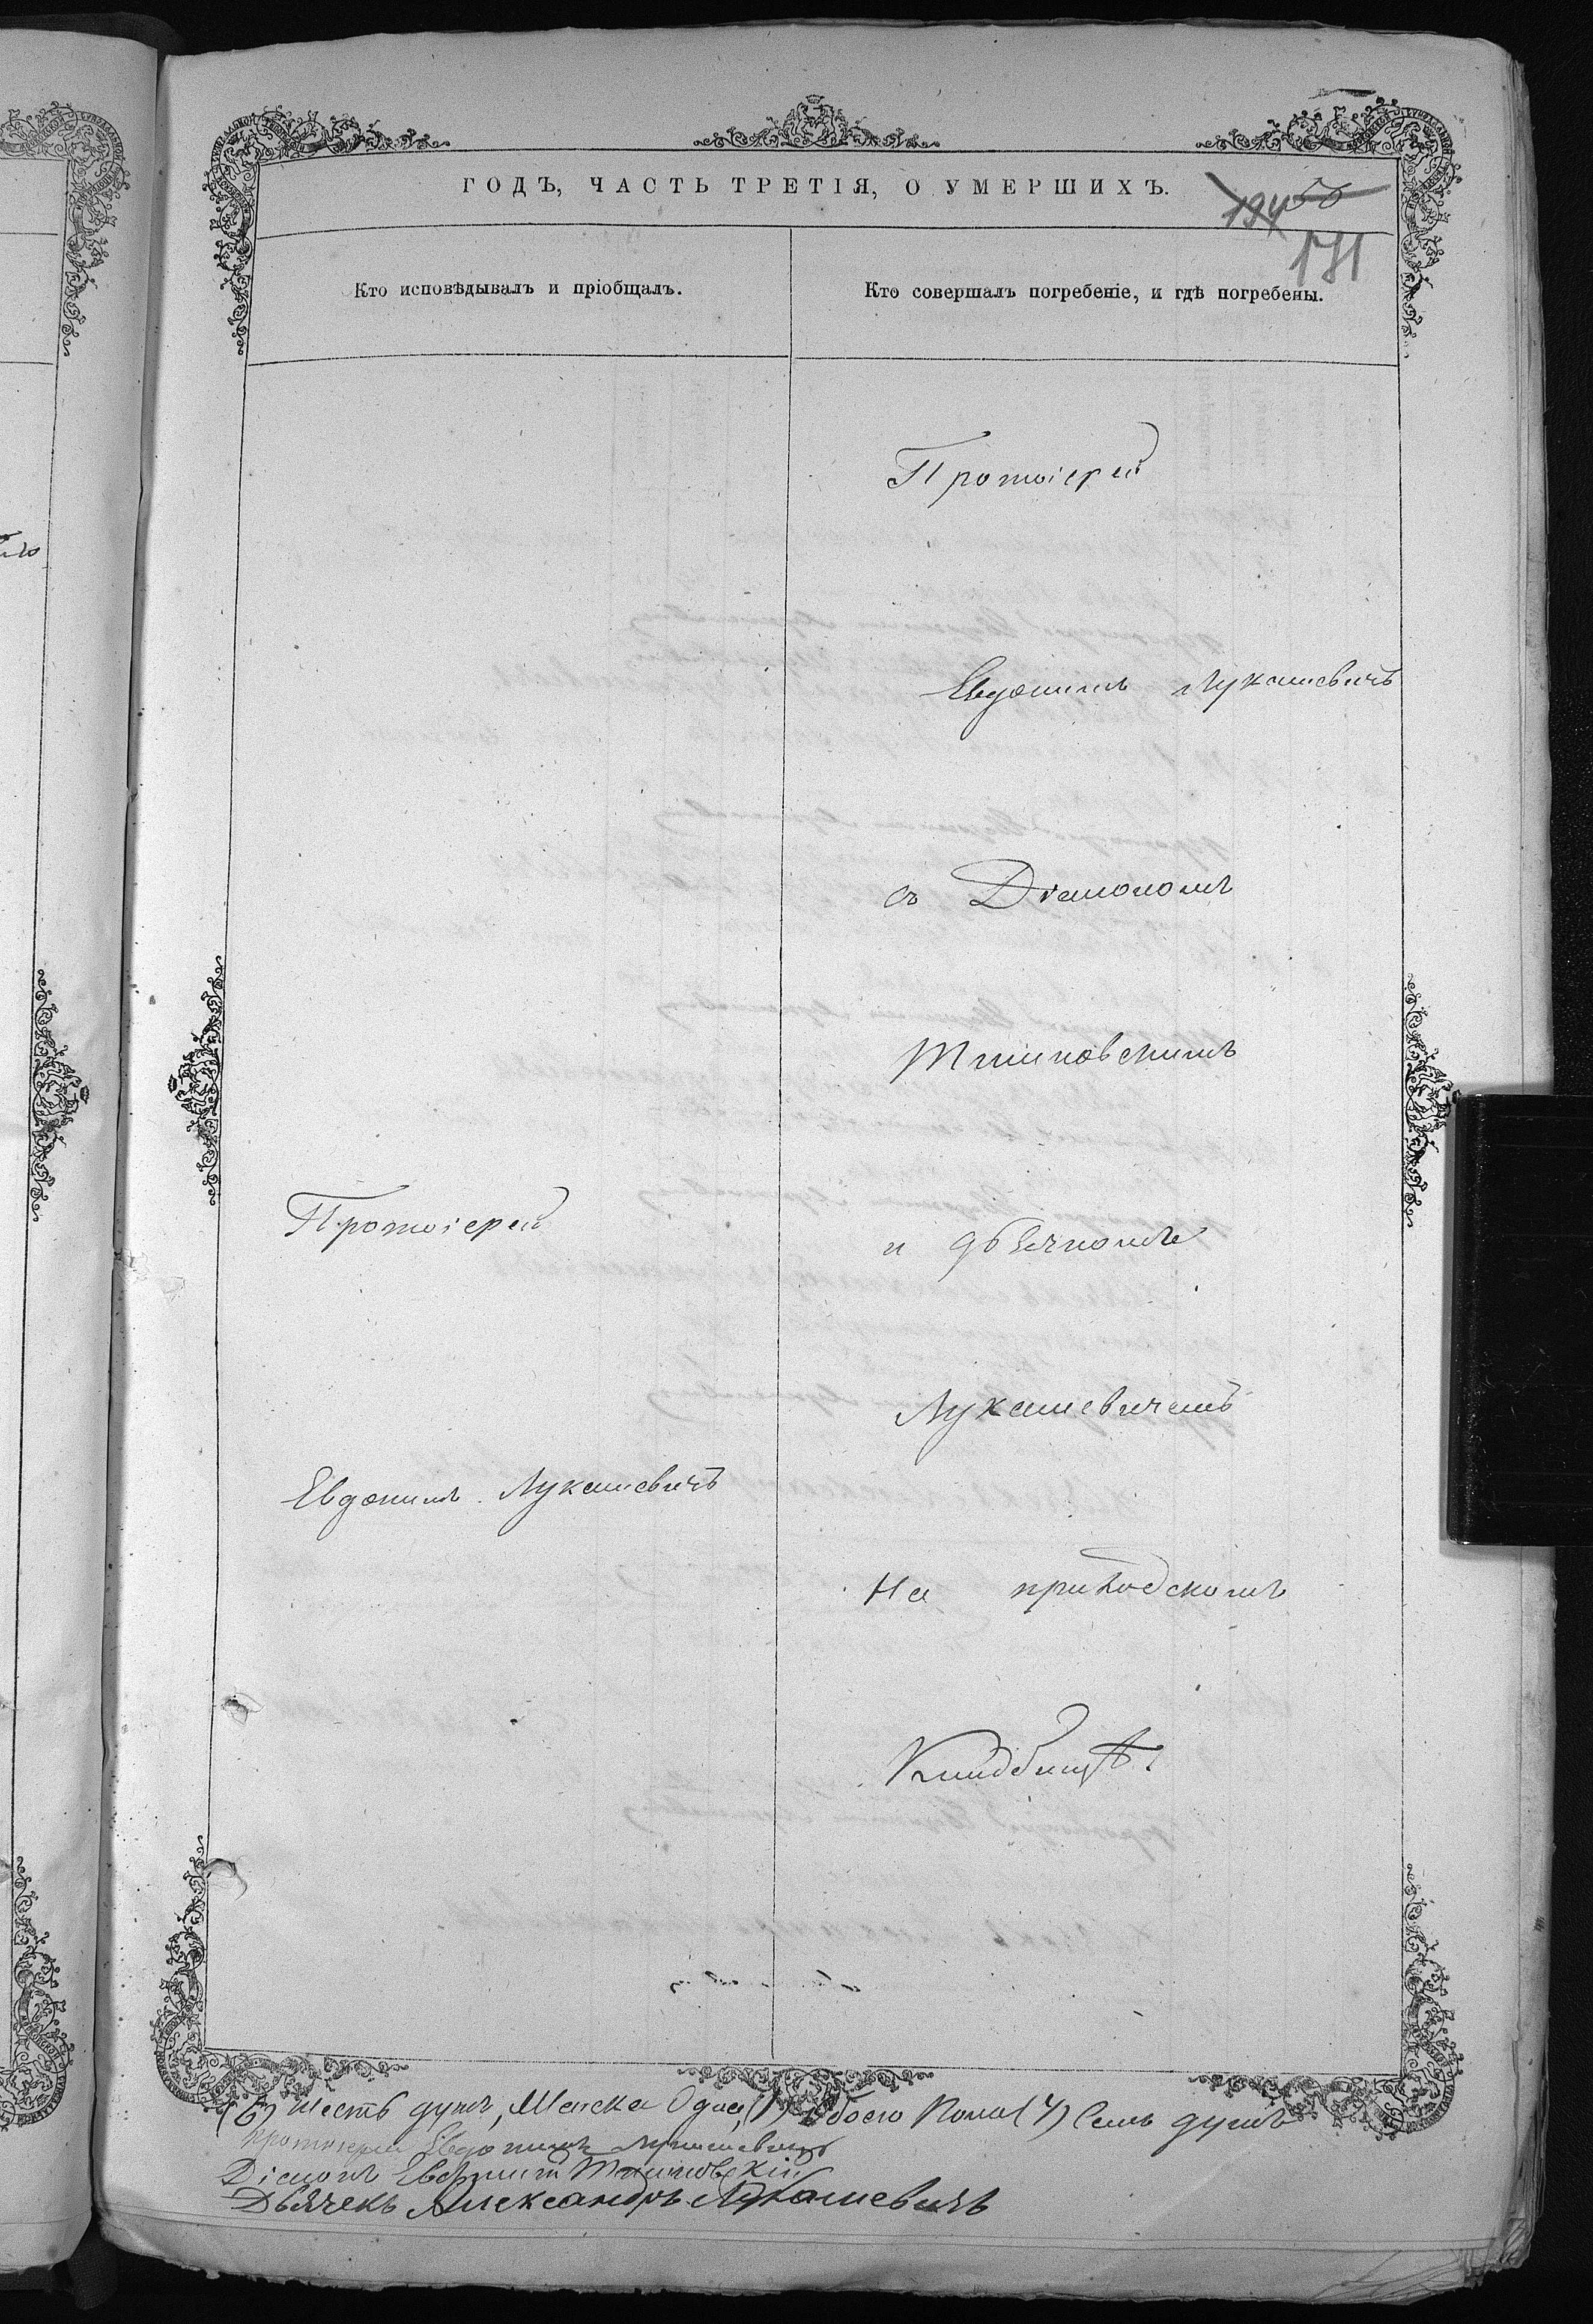 ГОДЪ, ЧАСТЬ ТРЕТІЯ, О УМЕРШИХЪ.
171
Кто исповѣдывалъ и пріобщалъ.
Кто совершалъ погребеніе, и гдѣ погребены.
Протоіерей
Евдокимъ Лукашевичъ
Протоіерей
Евдокимъ Лукашевичъ
съ Діакономъ
и дьячкомъ
Лукашевичемъ
На приходскомъ
Кладбищѣ.
(6) шесть душъ, Женска Одна (1) Обоего Пола (7) Семь душъ
Протоіерей Евдокимъ Лукашевичъ
Діаконъ
Дьячекъ Александръ Лукашевичъ